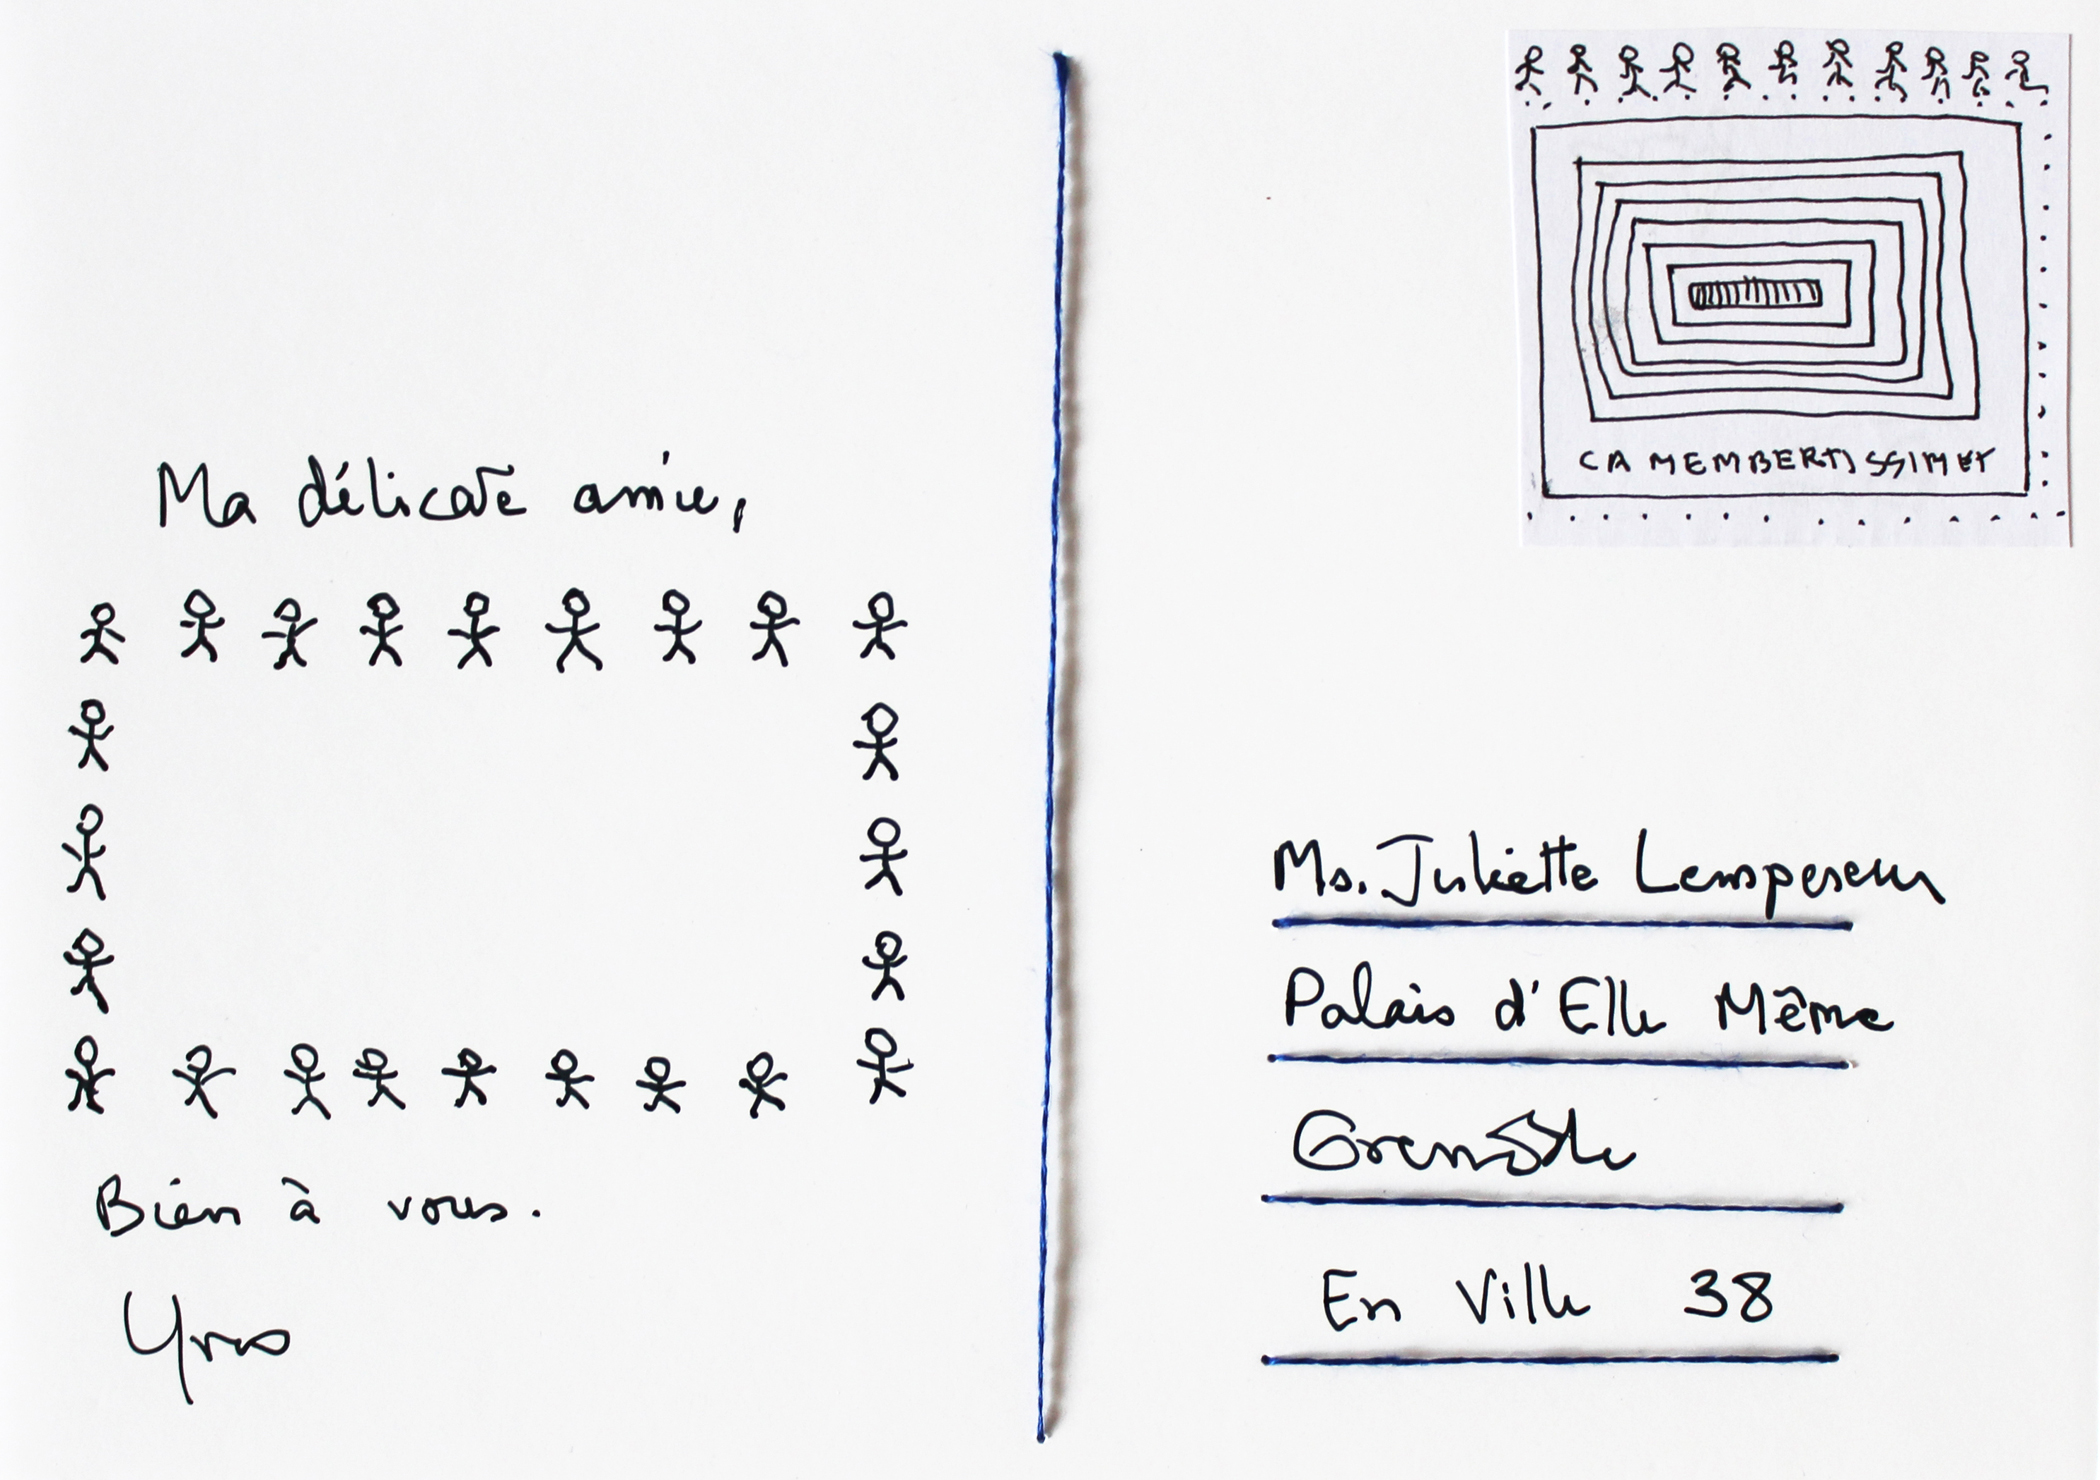 Ma délicate amie,
Bien à vous.
Yves
CAMEMBERTISSIMET
Ms. Juliette Lempereur
Palais d'Elle Même
Grenoble
En Ville 38